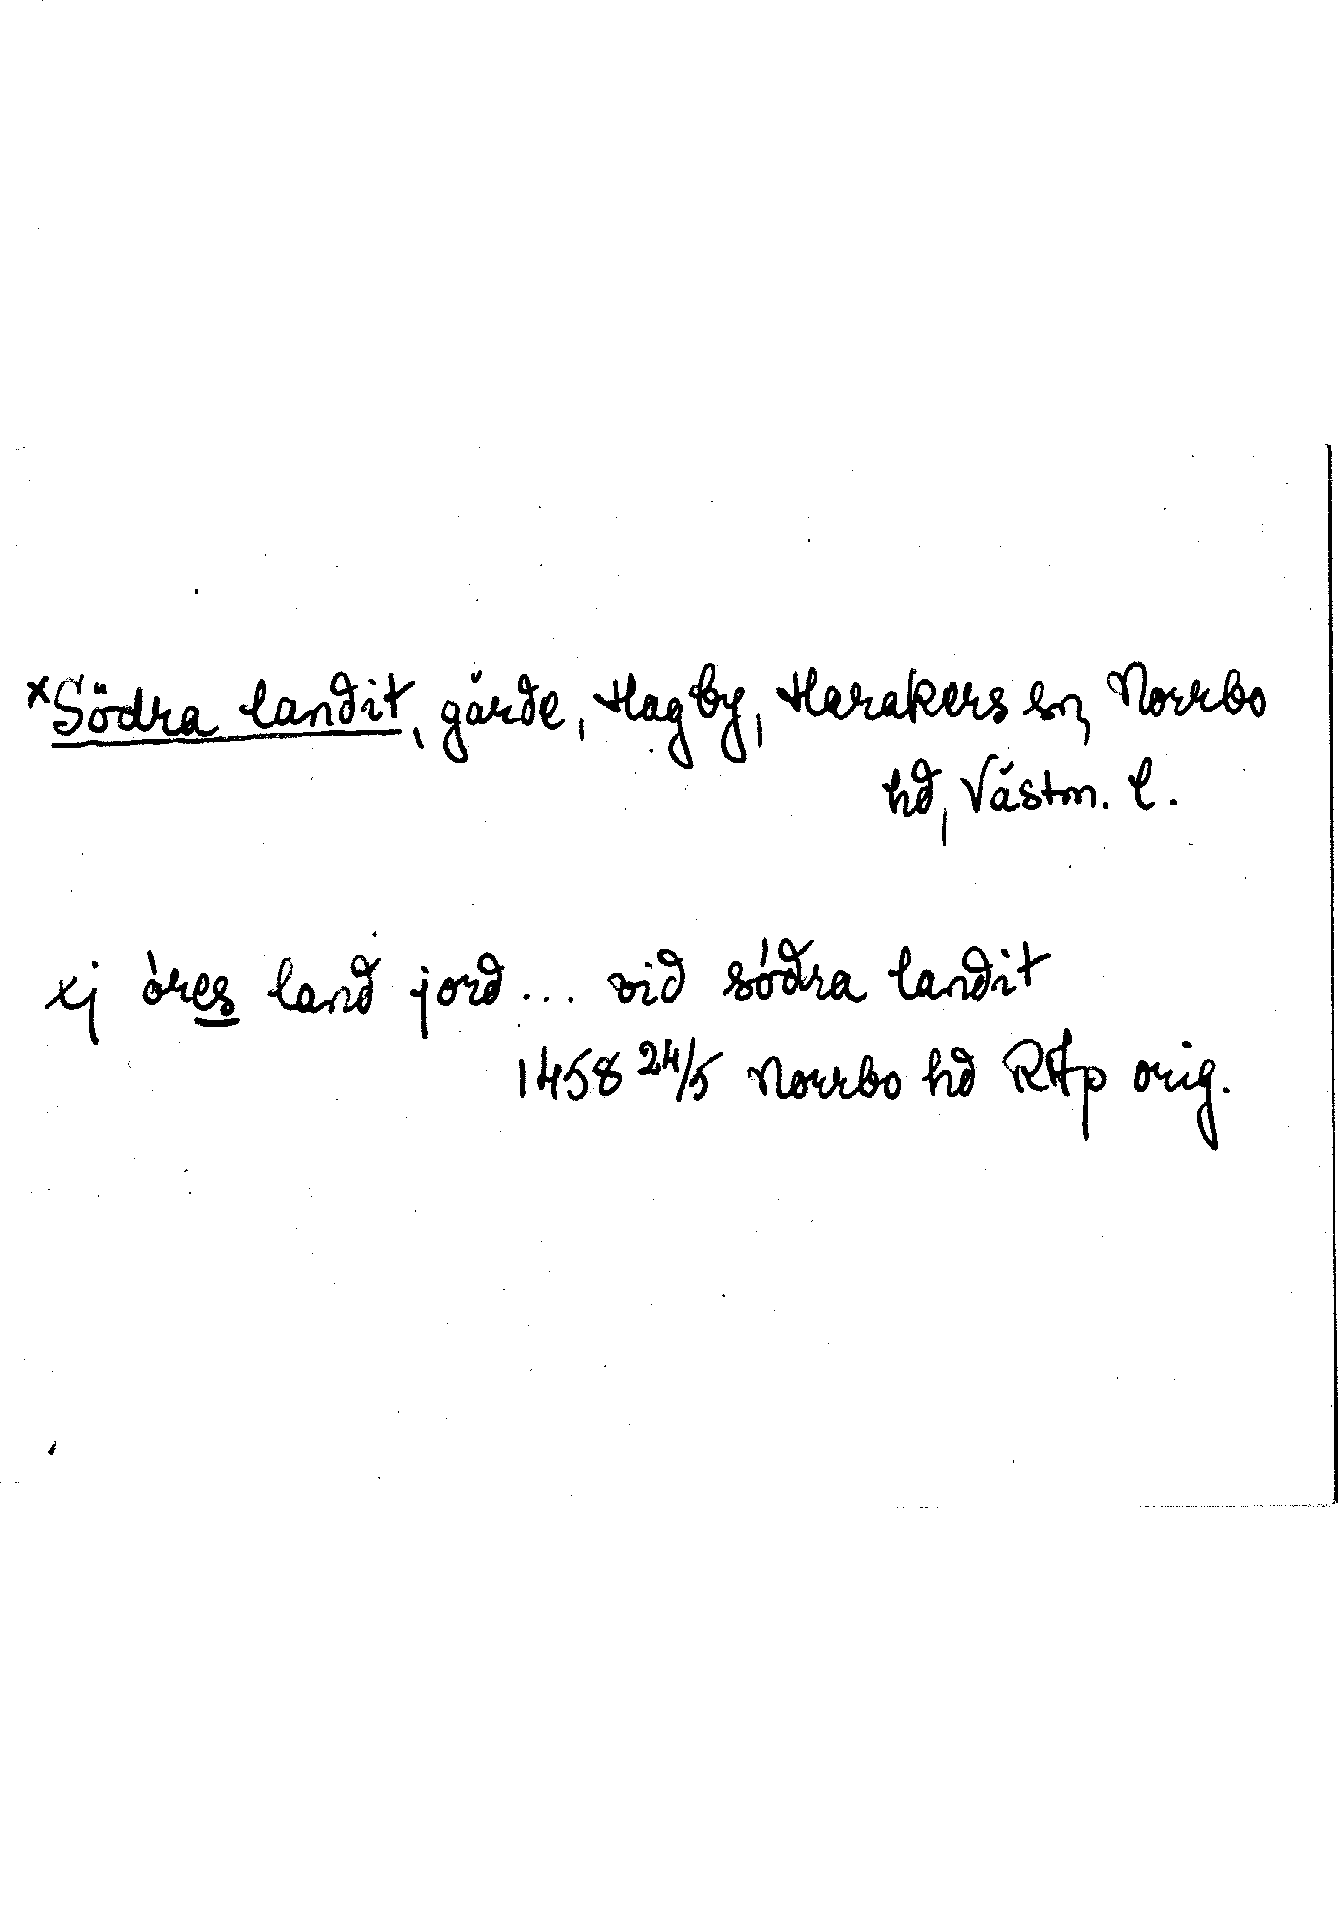 ×Södra landit, gärde, Hagby, Harakers sn, Norrbo
hd, Västm. l.
xj öres land jord... vid södra landit
1458 24/5 Norrbo hd RAp orig.